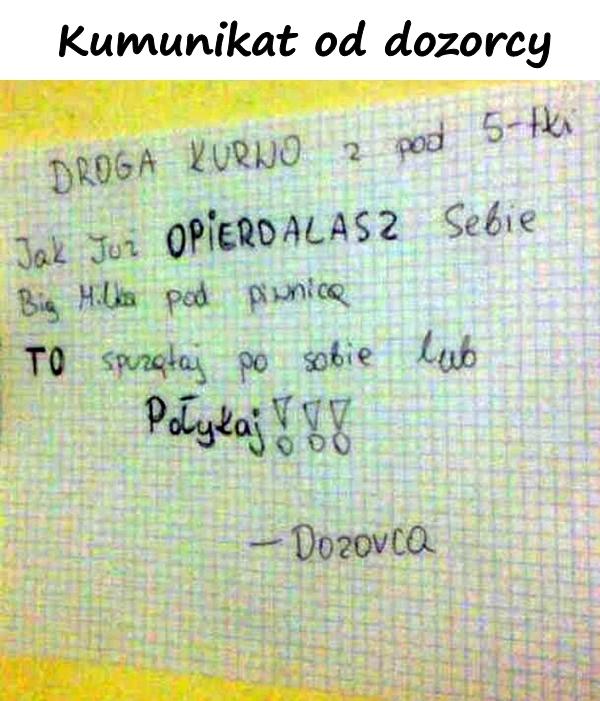 Kumunikat od dozorcy
DROGA KURWO z pod 5-tki
Jak Już OPiERDALASZ Sebie
Big Milka pod piwnicę
TO spuzątaj po sobie lub
Połykaj!!!
– Dozorca